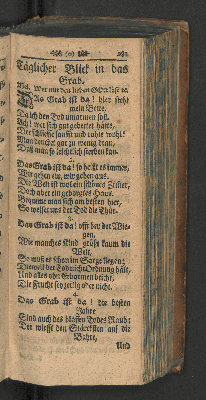 (o) 281
Täglicher Blick in das
Grab.
Mel. Wer nur den lieben GOtt läst ꝛc.
DAs Grab ist da! hier steht
mein Bette,
Da ich den Tod umarmen soll.
Ach! wer sich gut gebettet hätte,
Der schliefe sanfft und ruhte wohl!
Man dencket gar zu wenig dran,
Daß man so leichtlich sterben kan.
2.
Das Grab ist da! so heist es immer,
Wir gehen ein, wir gehen aus.
Die Welt ist wol ein schönes Zimmer,
Doch aber ein geborgtes Haus.
Bequeme man sich am besten hier,
So weiset uns der Tod die Thür.
3.
Das Grab ist da! offt bey der Wie-
gen.
Wie manches Kind grüst kaum die
Welt,
So muß es schon im Sarge liegen;
Dieweil der Tod nicht Ordnung hält,
Und alles ohne Unterscheid bricht,
Die Frucht sey zeitig oder nicht.
4.
Das Grab ist da! die besten
Jahre
Sind auch des blassen Todes Raub:
Der wirfft den Stärcksten auf die
Bahre,
Und